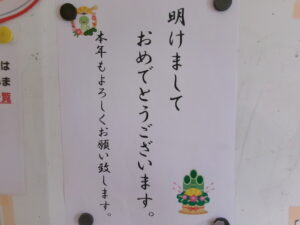 明けまして
おめでとうございます。
本年もよろしくお願い致します。
は
ま
覧